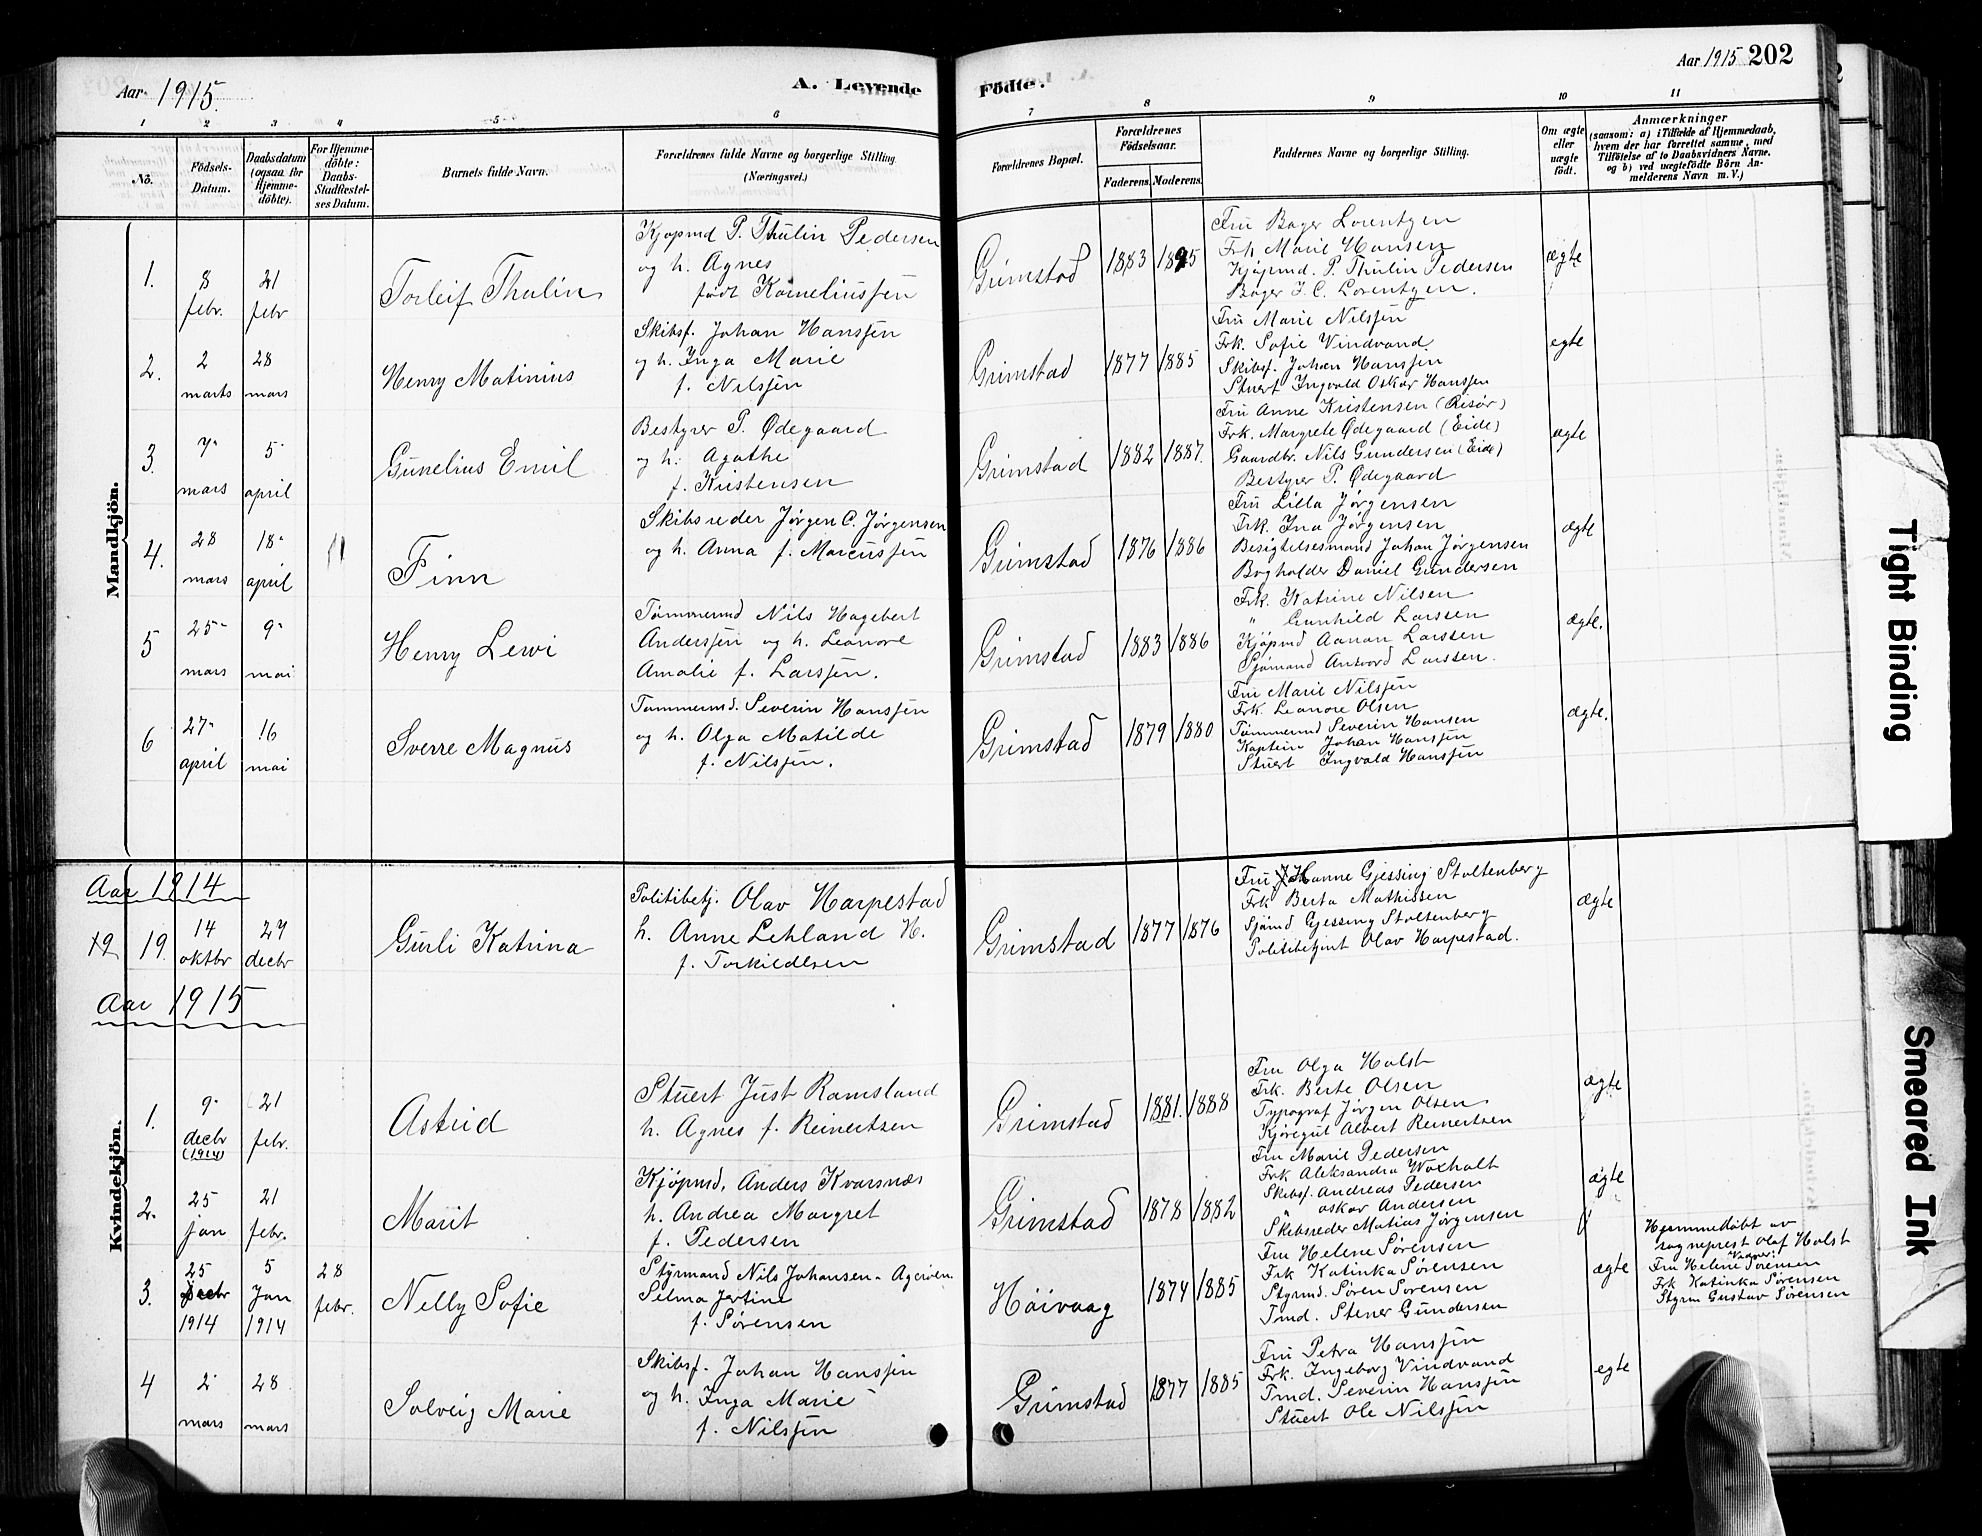 Aar 1915.
A. Levende
Fødte.
Aar 1915 202
1 2 3 4 5 6 7 8 9 10 11
Nö.
Födsels-Datum.
Daabsdatum (ogsaa for Hjemme-döbte).
For Hjemme-döbte: Daabs-Stadfæstel-ses Datum.
Barnets fulde Navn.
Forældrenes fulde Navne og borgerlige Stilling
(Næringsvei.)
Forældrenes Bopæl.
Forældrenes Födselsaar.
Faderens. Moderens.
Faddernes Navne og borgerlige Stilling.
Om ægte eller uægte födt.
Anmærkninger
(saasom: a) i Tilfælde af Hjemmedaab,
hvem der har forrettet samme, med
Tilföielse af to Daabsvidners Navne,
og b) ved uægtefödte Börn An-
melderens Navn m. V.)
Mandkjön.
1. 8 febr. 21 febr
Torleif Thulin
Kjøpmd P. Thulin Pedersen
og h. Agnes
født Korneliussen
Grimstad 1883 1895
Fru Bager Lorentzen
Frk Marie Hansen
Kjøpmd. P. Thulin Pedersen
Bager J. C. Lorentzen.
ægte
2. 2 marts 28 mars
Henry Matinius
Skibsf. Johan Hanssen
og h. Inga Marie
f. Nilssen
Grimstad 1877 1885
Fru Marie Nilssen
Frk. Sofie Vindvand
Skibsf. Johan Hanssen
Stuert Ingvald Oskar Hanssen
egte
3. 7 mars 5 april
Gunelius Emil
Bestyrer P. Ødegaard
og h. Agathe
f. Kristensen
Grimstad 1882 1887.
Fru Anne Kristensen (Risør)
Frk. Margrete Ødegaard (Eide)
Gaardbr. Nils Gundersen (Eide)
Bestyrer P. Ødegaard
ægte
4. 28 mars 18 april
Finn
Skibsreder Jørgen C. Jørgensen
og h. Anna f. Marcussen
Grimstad 1876 1886
Fru Lilla Jørgensen
Frk. Ina Jørgensen
Besigtelsesmand Johan Jørgensen
Bogholder Daniel Gundersen
ægte
5 25 mars 9 mai
Henry Lewi
Tømmermd Nils Hagebert
Anderssen og h. Leonore
Amalie f. Larssen.
Grimstad 1883 1886
Frk. Katrine Nilsen
" Gunhild Larssen
Kjøpmd Aanon Larssen
Sjømand Larssen.
ægte.
6 27 april 16 mai
Sverre Magnus
Tømmermd. Severin Hanssen
og h. Olga Matilde
f. Nilssen.
Grimstad 1879 1880
Fru Marie Nilssen
Frk. Leonore Olsen
Tømmermd Severin Hansen
Kaptein Johan Hanssen
Stuert Ingvald Hanssen
ægte.
Aar 1914
19. 14 oktbr 27 decbr
Gurli Katrina
Politibetj. Olav Harpestad
h. Anne Lehland H.
f. Torkildsen
Grimstad 1877 1876
Fru Hanne Gjessing Stoltenberg
Frk Berta Mathissen
Sjømd Gjessing Stoltenberg
Politibetjent Olav Harpestad.
ægte
Aar 1915
Kvindekjön.
1. 9 decbr (1914) 21 febr.
Astrid
Stuert Just Ramsland
h. Agnes f. Reinertsen
Grimstad 1881. 1888
Fru Olga Holst
Frk. Berte Olsen
Typograf Jørgen Olsen
Kjøregut Albert Reinertsen
ægte
2. 25 jan 21 febr.
Marit
Kjøpmd. Anders Kvarsnæs
h. Andrea Margret
f. Pedersen
Grimstad 1878 1882
Fru Marie Pedersen
Frk Aleksandra Woxholt
Skibsf. Andreas Pedersen
" Oskar Andersen
Skibsreder Matias Jørgensen
ægte
3. 25 Decbr 1914 5 Jan 1914 28 febr.
Nelly Sofie
Styrmand Nils Johansen-
Selma Jertine
f. Sørensen
Høivaag 1874 1885
Fru Helene Sørensen
Frk Katinka Sørensen
Styrmd. Søren Sørensen
Tmd. Stener Gundersen
ægte
Hjemmedøbt av
sogneprest Olaf Holst
Vidner:
Fru Helene Sørensen
Frk Katinka Sørensen
Styrm Gustav Sørensen
4 2 mars 28 mars
Solveig Marie
Skibsf. Johan Hanssen
og h. Inga Marie
f. Nilssen
Grimstad 1877 1885
Fru Petra Hanssen
Frk. Ingeborg Vindvand
Tmd. Severin Hanssen
Stuert Ole Nilssen
egte
Tight Binding
Smeared Ink